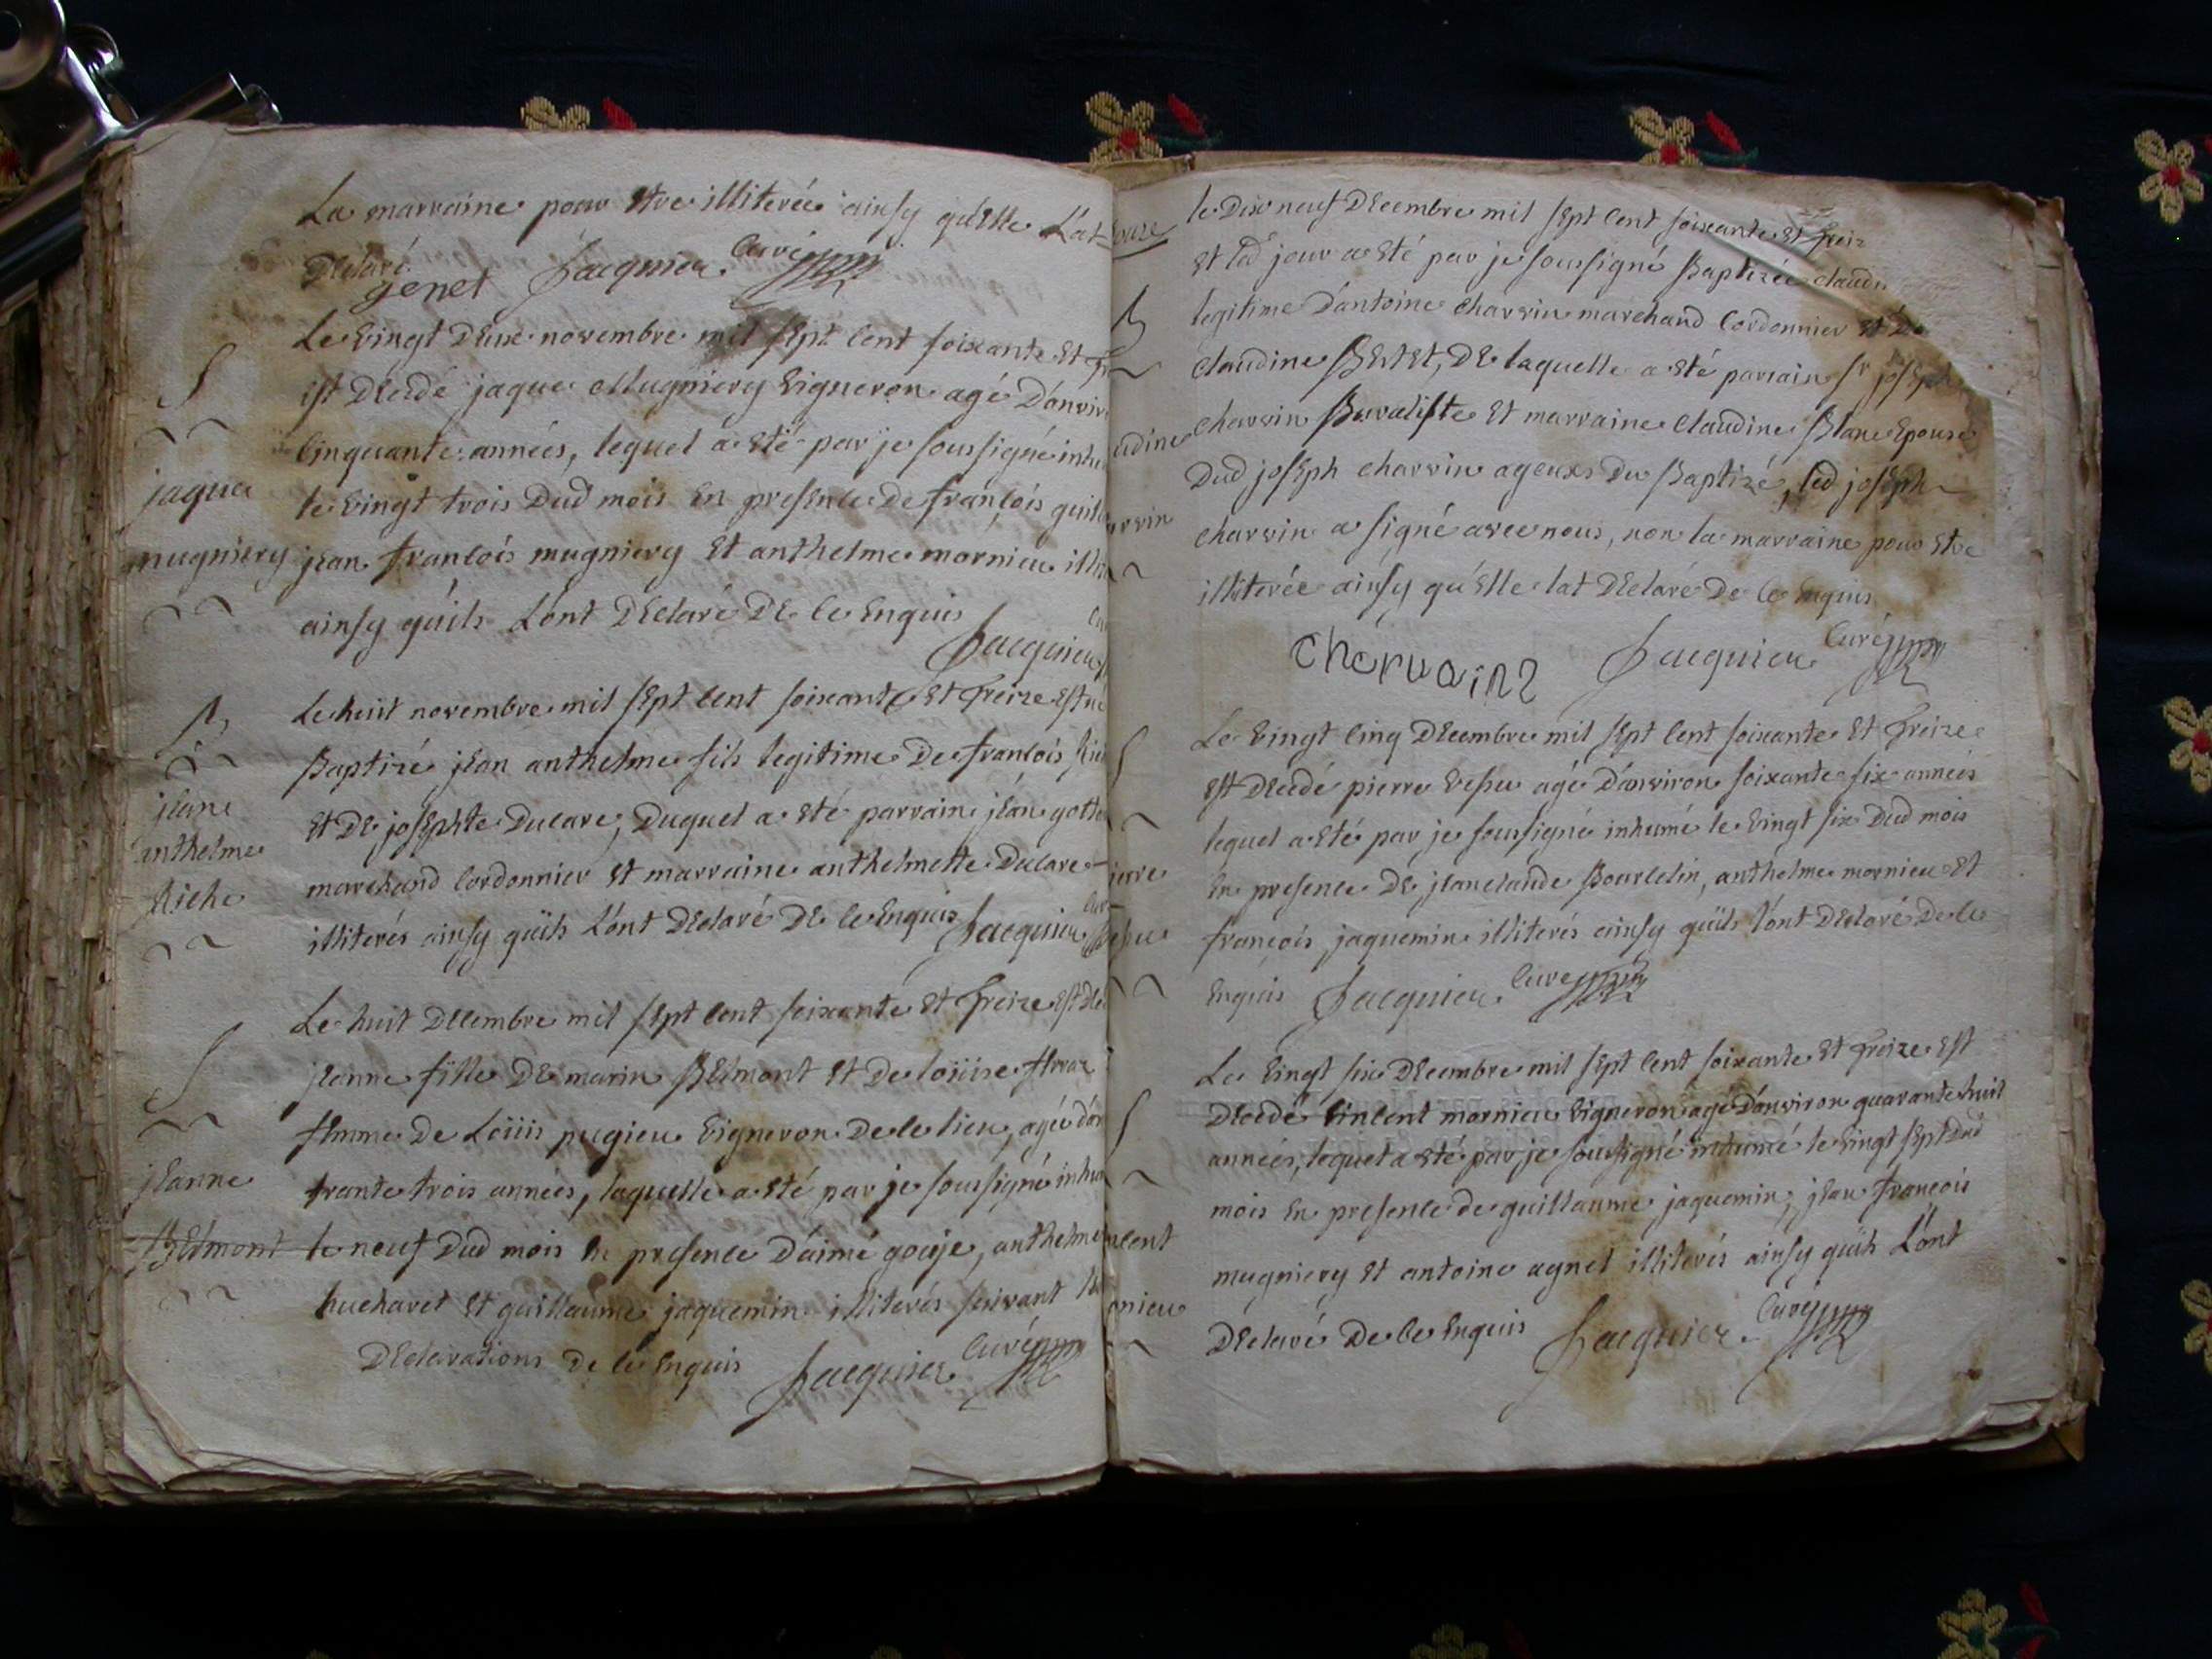 La marraine pour Etre illiterée ainsy qu'Elle L'at
Declaré.
genet Jacquier Curé
Le vingt Deux novembre mil sept cent soixante Et
Est Decedé jaque Mugniery vigneron agé D'anvir
cinquante années, lequel a Eté par je soussigné inhu
jaque
le vingt trois Dud mois En presence De françois
mugniery
jean françois mugniery Et anthelme mornieu illit
ainsy qu'ils L'ont Declaré De ce Enquis
Jacquier
Le huit novembre mil sept cent soixante Et treize Est né
Baptizé jean anthelme fils legitime De françois
Et De josephte Ducare, Duquel a Eté parrain jean
jean
anthelme
marchand Cordonnier Et marraine anthelmette Ducare
Riche
illiterés ainsy qu'ils L'ont Declaré De ce Enquis Jacquier
Le huit Decembre mil sept cent soixante Et treize Est De
jeanne fille De marin Belmont Et De loüise
femme De Loüis pugieu vigneron De ce lieu, agée D'an
jeanne
trante trois années, laquelle a Eté par je soussigné inhu
Belmont
le neuf Dud mois En presence D'aimé gouje, anthelme
hucharet Et guillaume jaquemin illiterés suivant
Declarations De ce Enquis Jacquier Curé
le Dix neuf Decembre mil sept cent soixante Et treiz
Et led jour a Eté par je soussigné Baptizée claudi
legitime D'antoine charvin marchand Cordonnier Et De
claudine Bertet, De laquelle a Eté parrain Sr joseph
charvin Buraliste Et marraine claudine Blanc Epouse
udine
Dud joseph charvin ageuxs Du Baptizé, led joseph
arvin
charvin a signé avec nous, non la marraine pour Etre
illiterée ainsy qu'Elle lat Declaré De ce Enquis
chervains Jacquier Curé
Le vingt cinq Decembre mil sept cent soixante Et treize
Est Decedé pierre vepieu agé D'anviron soixante six années
lequel a Eté par je soussigné inhumé le vingt six Dud mois
ierre
En presence De jeanclaude Bourdelin, anthelme mornieu Et
françois jaquemin illiterés ainsy qu'ils L'ont Declaré De ce
Enquis Jacquier Curé
Le vingt six Decembre mil sept cent soixante Et treize Est
Decedé vincent mornieu vigneron agé D'anviron quarante huit
années, lequel a Eté par je soussigné inhumé le vingt sept Dud
mois En presence de guillaume jaquemin, jean françois
ncent
mugniery Et antoine agnet illiterés ainsy qu'ils L'ont
rnieu
Declaré De ce Enquis Jacquier Curé